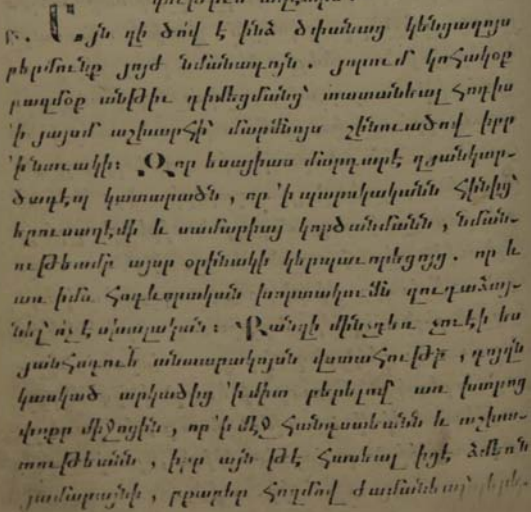 բ. Այն զի ծով է ինձ ծփանաց կենցաղոյս
բերմունք յոյժ նմանադոյն . յորում կոհակօք
բազմօք անթիւ դիմեցմանց՝ տատանեալ հոգիս
՚ի յայսմ աշխարհի՝ մարմնոյս շինուածով իբր
՚ի նաւակի: Զոր եսայիաս մարգարէ զյանկար-
ծադէպ կատարածն , որ ՚ի պարսկականն հինից՝
երուսաղէմի և սամարիայ կործանմանն , նման-
ութեամբ այսր օրինակի կերպաւորեցոյց . որ և
առ իմս հոգևորական խորտակումն զուգաձայ-
նել ոչ է սխալական: Քանզի մինչդեռ չուէի ես
յանհոգունս անտարակոյսն վստահութբ , դոյզն
կասկած արկածից ՚ի միտ բերելով առ խաղաց
փոքր միջոցին , որ ՚ի մէջ հանգստեանն և աշխա-
տութեանն , իբր այն թէ հասեալ իցէ ձմեռն
յամարայնի , բքաբեր հողմով